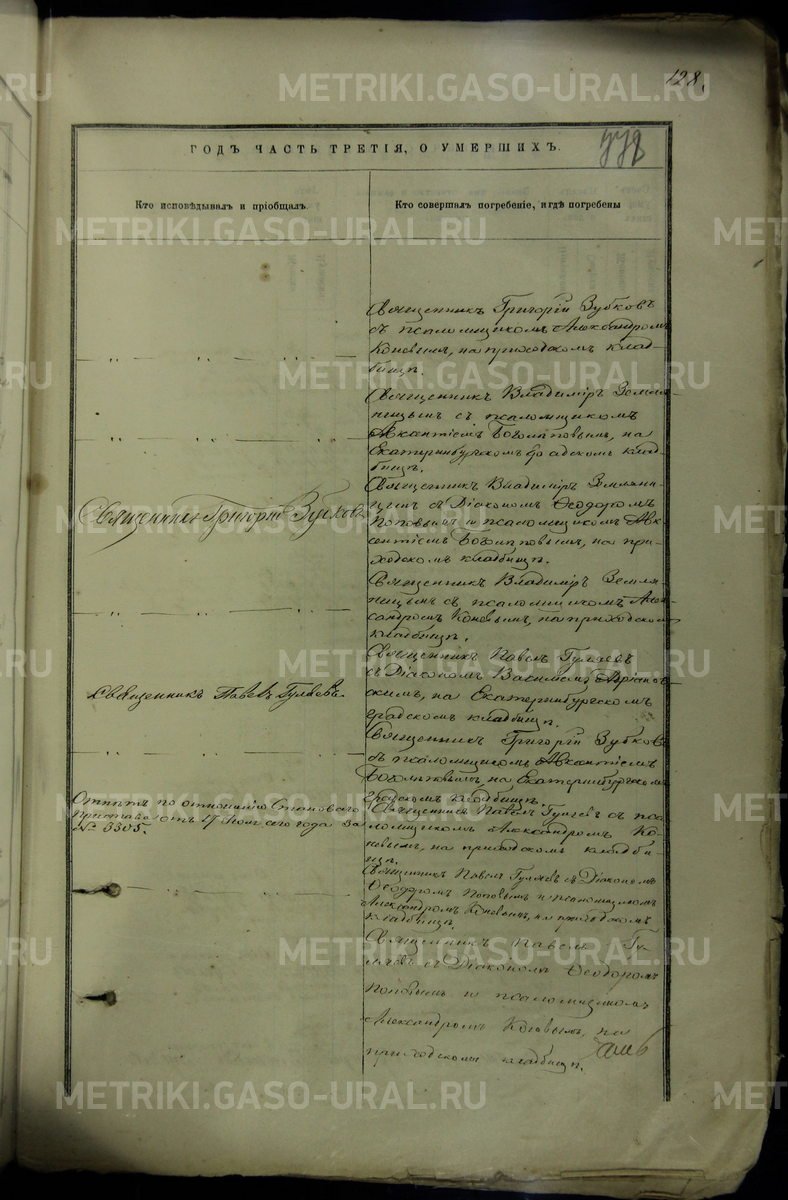 128.
ГОДЪ ЧАСТЬ ТРЕТІЯ, О УМЕРШИХЪ.
Кто исповѣдывалъ и пріобщалъ.
Кто совершалъ погребеніе, и гдѣ погребены
Священникъ Григорій Зубковъ
съ псаломщикомъ Александромъ
Коневымъ, на приходскомъ клад-
бищѣ.
Священникъ Владиміръ Земля-
ницынъ съ псаломщикомъ
Авксентіемъ Боголѣповымъ, на
Екатеринбургскомъ градскомъ клад-
бищѣ.
Священникъ Григорій Зубковъ
Священникъ Владиміръ Земляни-
цынъ съ Діакономъ Ѳеодоромъ
Поповымъ и псаломщикомъ Авк-
сентіемъ Боголѣповымъ, на при-
ходскомъ кладбищѣ.
Священникъ Владиміръ Земля-
ницынъ съ псаломщикомъ Алек-
сандромъ Коневымъ, на приходскомъ
кладбищѣ.
Священникъ Павелъ Гуляевъ.
Священникъ Павелъ Гуляевъ
съ Діакономъ Василіемъ
скимъ, на Екатеринбургскомъ
градскомъ кладбищѣ.
Священникъ Григорій Зубковъ
съ псаломщикомъ Авксентіемъ
Боголѣповымъ, на Екатеринбургскомъ
градскомъ кладбищѣ.
Отпѣтъ по отношенію Становаго
Пристава отъ 17 сего года за
№ 3305.
Священникъ Павелъ Гуляевъ съ пса-
ломщикомъ Александромъ Ко-
невымъ, на приходскомъ кладби-
щѣ.
Священникъ Павелъ Гуляевъ съ Діакономъ
Ѳеодоромъ Поповымъ и псаломщикомъ
Александромъ Коневымъ, на приходскомъ
кладбищѣ.
Священникъ Павелъ Гу-
ляевъ съ Діакономъ Ѳеодоромъ
Поповымъ и псаломщикомъ
Александромъ Коневымъ, на
приходскомъ кладбищѣ.
METRIKI.GASO-URAL.RU